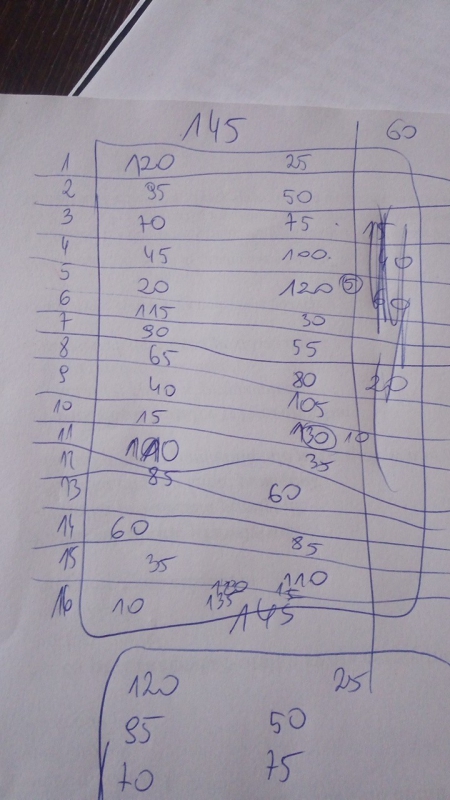 145 60
1 120 25
2 95 50
3 70 75
4 45 100
5 20 120 5
6 115 30
7 90
8 65 55
9 40 80 20
10 15 105
11 130 10
12 85 35
13 60
14 60 85
15 35 110
16 10 135 15
145
120 25
95 50
70 75